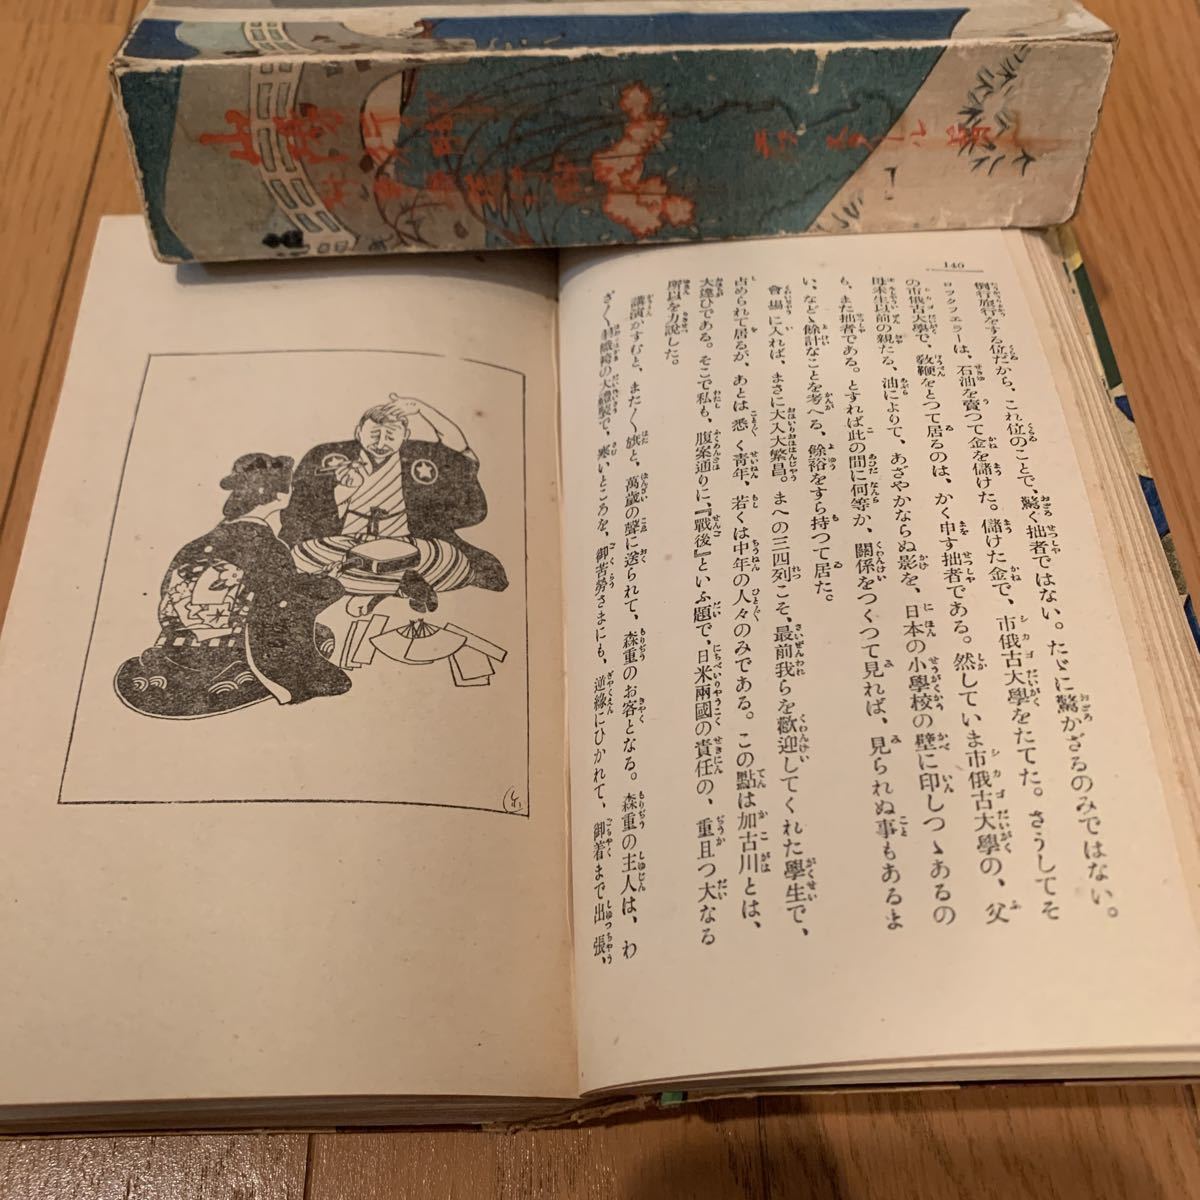 140
倒行旅行をする位だから、これ位のことで、驚く拙者ではない。たゞに驚かざるのみではない。
ロツクフエラーは、石油を賣つて金を儲けた。儲けた金で、市俄古大學をたてた。さうしてそ
の市俄古大學で、教鞭をとつて居るのは、かく申す拙者である。然していま市俄古大學の、父
母未生以前の親たる、油によりて、あざやかならぬ影を、日本の小學校の壁に印しつゝあるの
も、また拙者である。とすれば此の間に何等か、關係をつくつて見れば、見られぬ事もあるま
い、などゝ餘計なことを考へる、餘裕をすら持つて居た。
會場に入れば、まさに大入大繁昌。まへの三四列こそ、最前我らを歡迎してくれた學生で、
占められて居るが、あとは悉く青年、若くは中年の人々のみである。この點は加古川とは、
大違ひである。そこで私も、腹案通りに、『戰後』といふ題で、日米兩國の責任の、重且つ大なる
所以を力説した。
講演がすむと、また〱旗と、萬歳の聲に送られて、森重のお客となる。森重の主人は、わ
ざ〱、羽織袴の大禮裝で、寒いところを、御苦勞さまにも、逆緣にひかれて、御着まで出張、